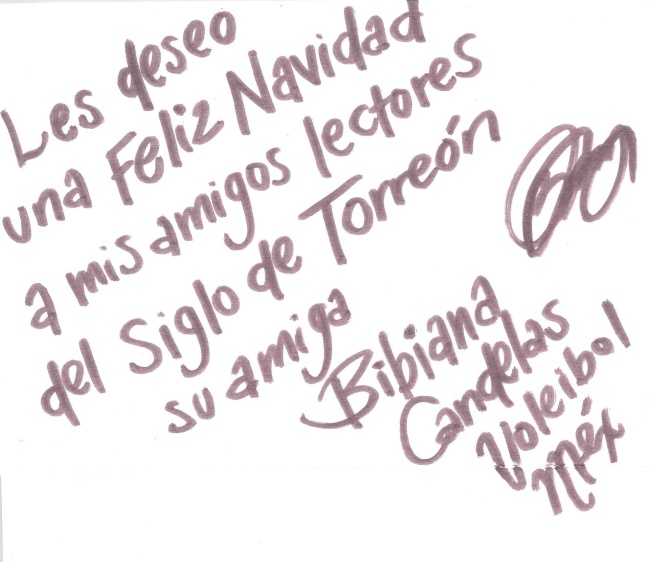 Les deseo
una Feliz Navidad
a mis amigos lectores
del Siglo de Torreón
su amiga
Bibiana
Candelas
Voleibol
méx